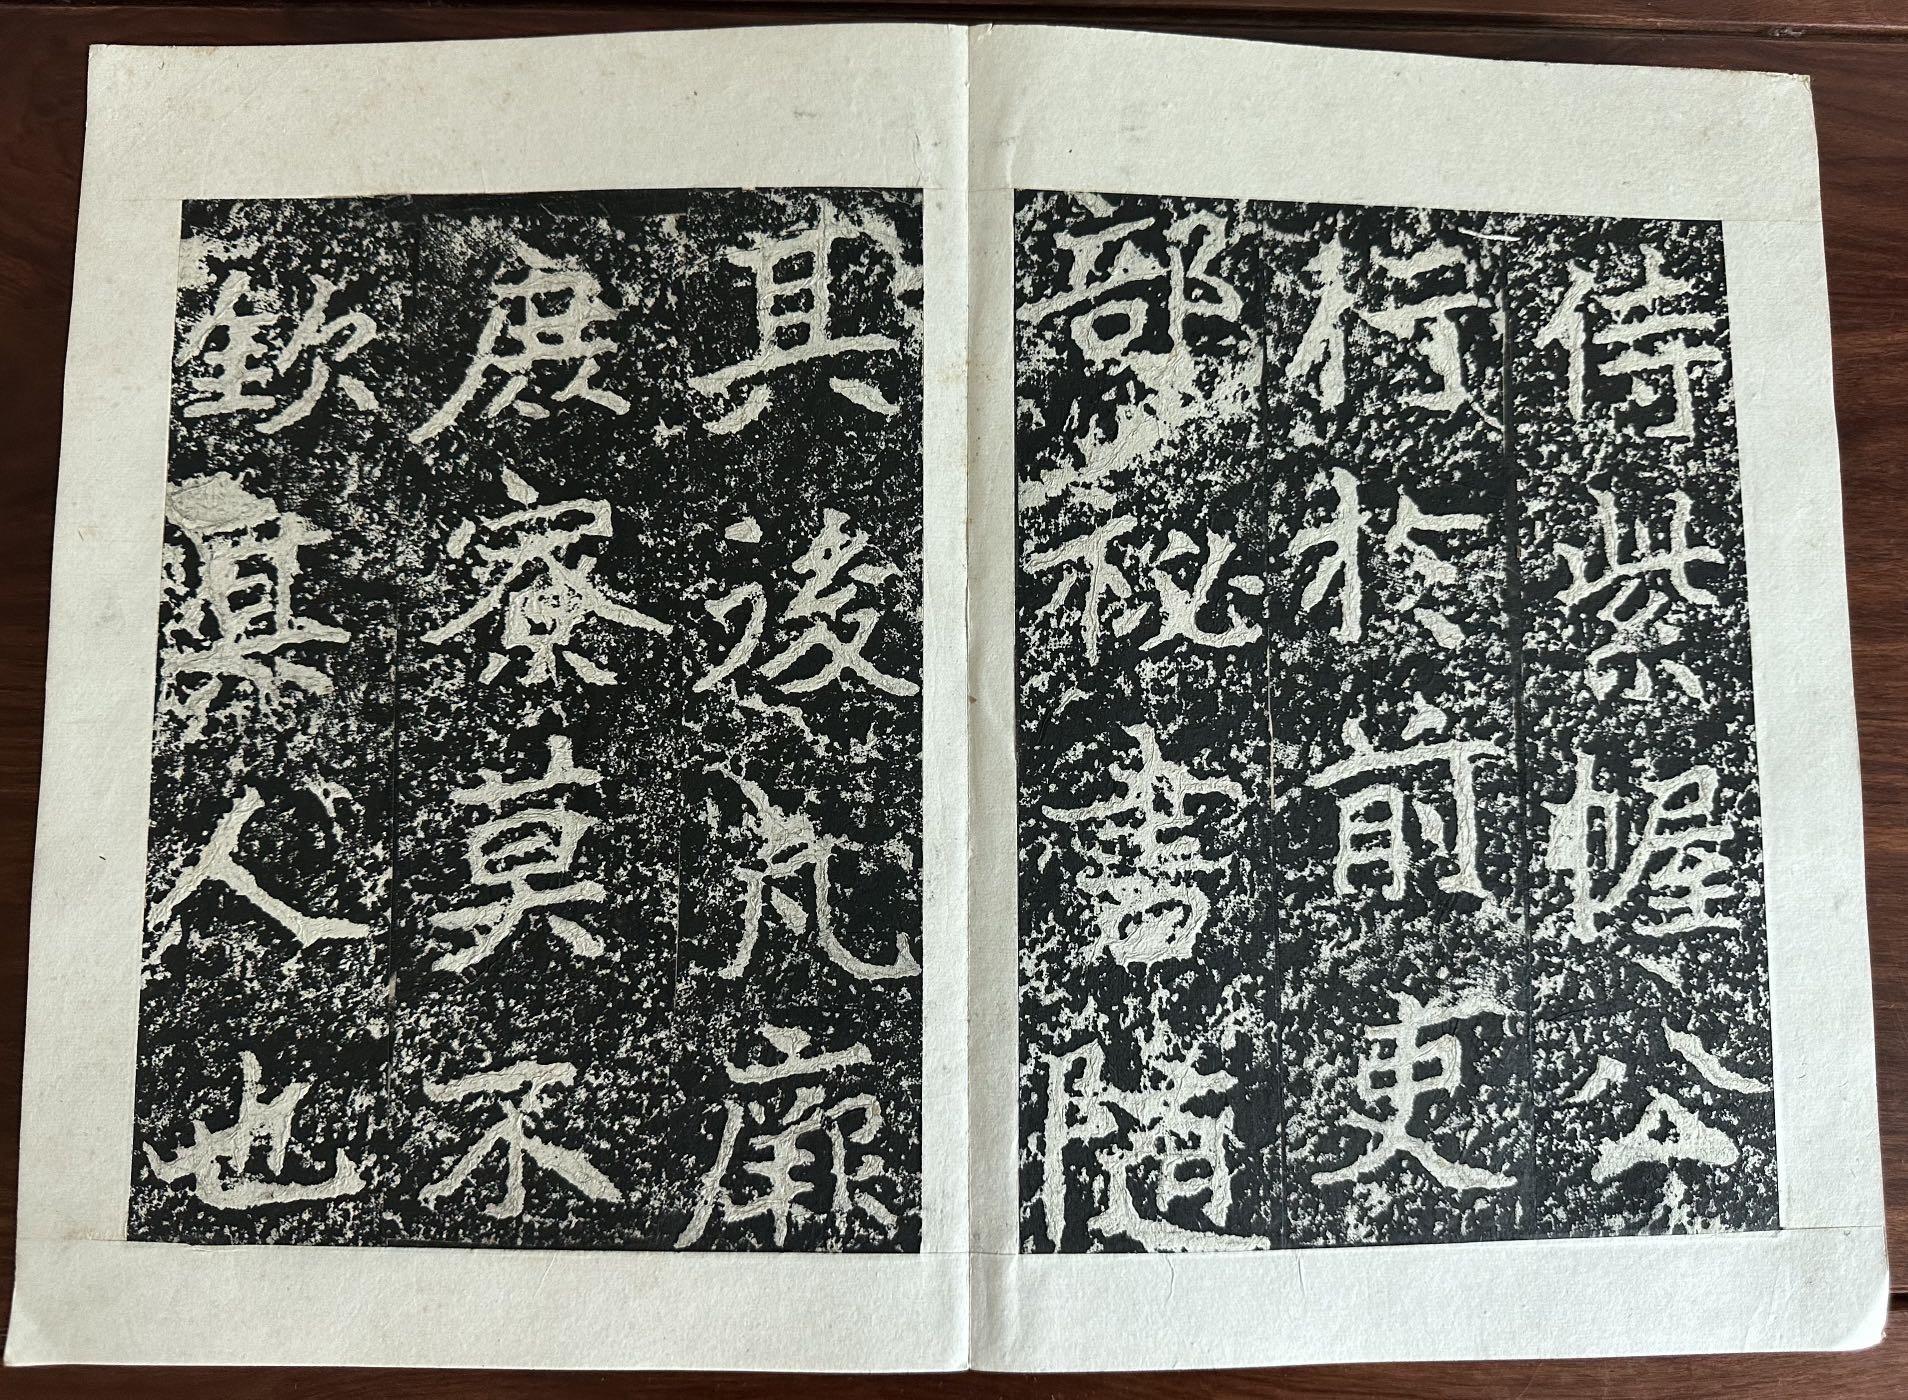 侍紫幄公
行於前吏
部秘書随
其後凡厥
庶寮莫不
欽其人也